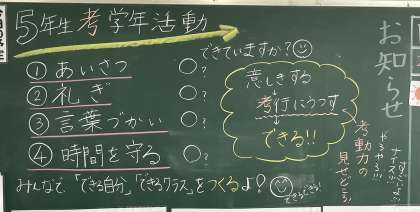 5年生 考 学年活動
できていますか?
① あいさつ ○?
② 礼ぎ ○?
③ 言葉づかい ○?
④ 時間を守る ○?
意しきする
↓
考行にうつす
↓
できる!!
みんなで、「できる自分」「できるクラス」をつくる♪?
できうできう
お知らせ
考動力の
見せどころ